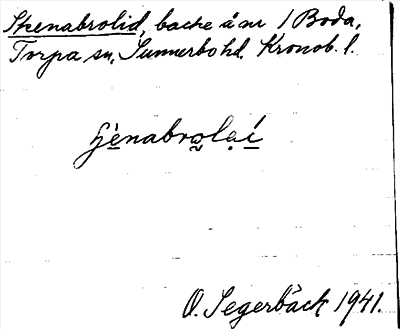 Skenabrolid, backe å nr 1 Boda,
Torpa sn, Sunnerbo hd. Kronob. l.
O. Segerbäck 1941.